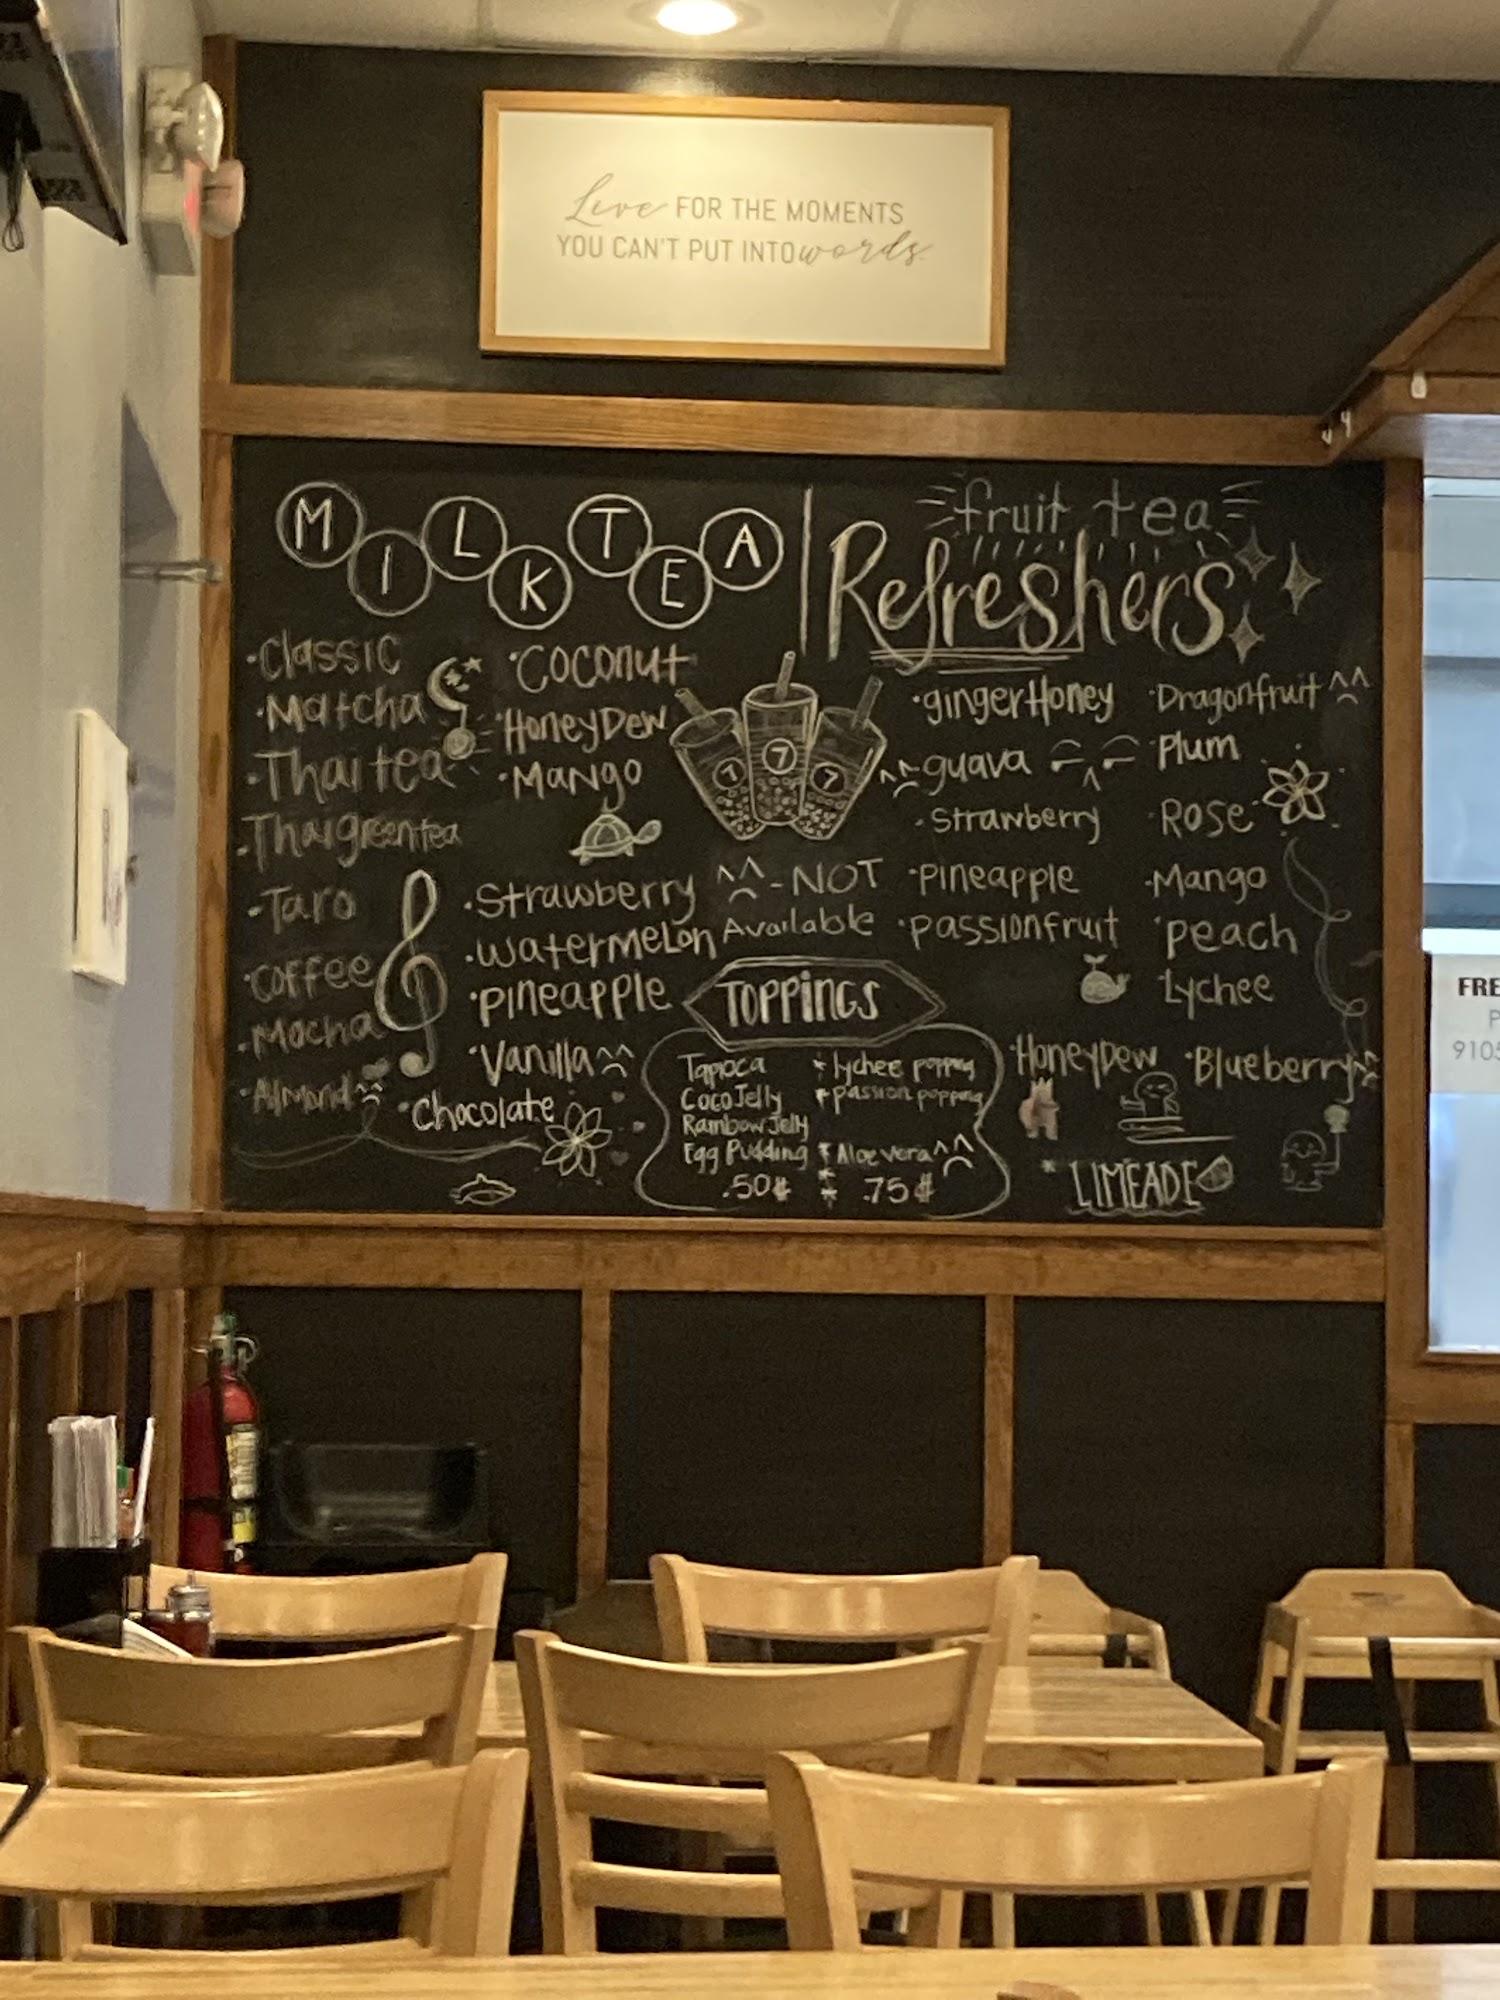 Live FOR THE MOMENTS
YOU CAN'T PUT INTO words.
MILK TEA
·Classic
·Matcha
·Thai tea
·Thai green tea
·Taro
·Coffee
·Mocha
·Almond
·Coconut
·HoneyDew
·Mango
·Strawberry
·Watermelon
·Pineapple
·Vanilla
·Chocolate
7
7
7
^^ - NOT
Available
fruit tea
Refreshers
·ginger Honey
·guava
·Strawberry
·Pineapple
·Passionfruit
·HoneyDew
·Dragonfruit
·Plum
·Rose
·Mango
·Peach
·Lychee
·Blueberry
* LIMEADE
TOPPINGS
Tapioca
Coco Jelly
Rainbow Jelly
Egg Pudding
.50¢
* lychee popping
* passion popping
* Aloe vera
* .75¢
FRE
P
9105